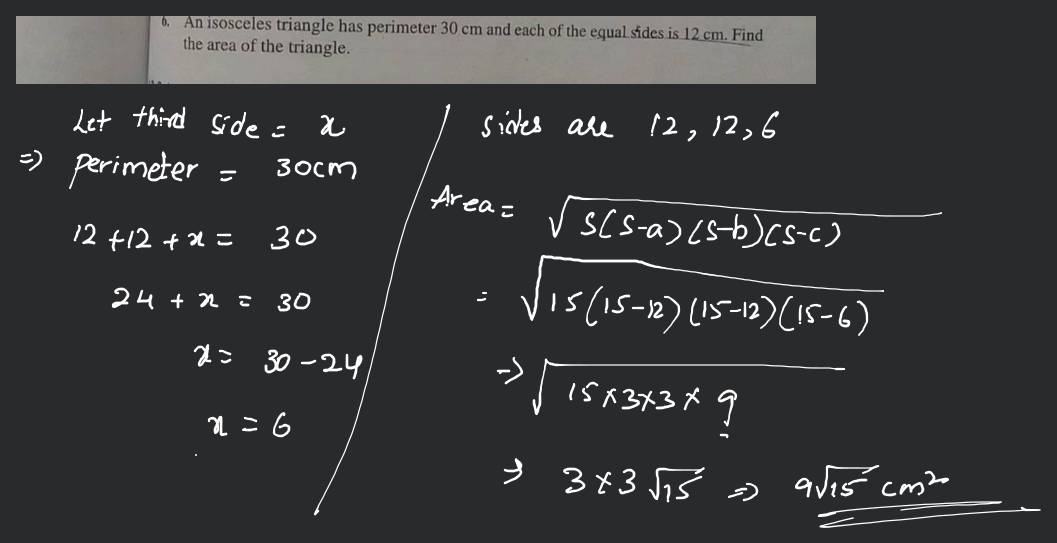 6. An isosceles triangle has perimeter 30 cm and each of the equal sides is 12 cm. Find
the area of the triangle.
Let third side = x
=> Perimeter = 30cm
12 + 12 + x = 30
24 + x = 30
x = 30 - 24
x = 6
Sides are 12, 12, 6
Area = √S(S-a)(S-b)(S-c)
= √15(15-12)(15-12)(15-6)
-> √15×3×3×9
→ 3×3√15 => 9√15 cm²